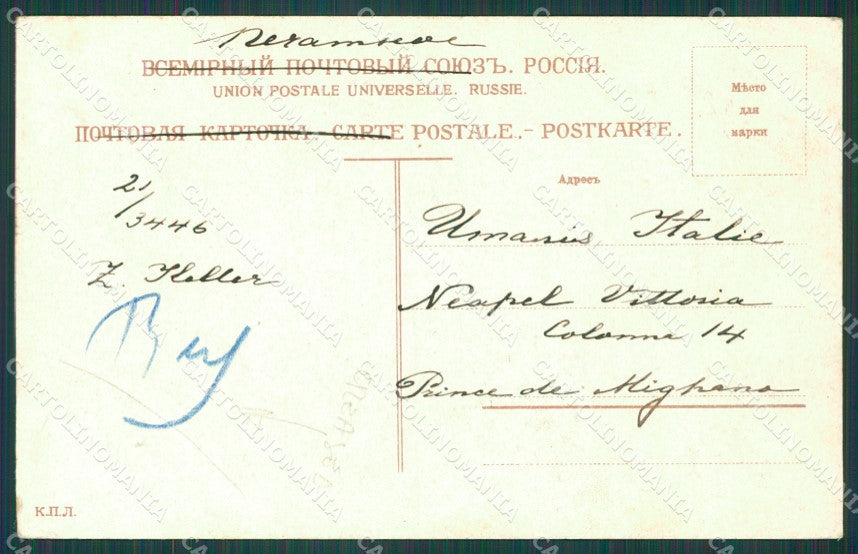 Печатное
ВСЕМІРНЫЙ ПОЧТОВЫЙ СОЮЗЪ. РОССІЯ.
UNION POSTALE UNIVERSELLE. RUSSIE.
ПОЧТОВАЯ КАРТОЧКА. – CARTE POSTALE. – POSTKARTE.
Мѣсто
для
марки
Адресъ
21/3446
Z. Keller
Italie
Neapel Vittoria
Colonna 14
Prince de Mignano
К.П.Л.
CARTOLINOMANIA